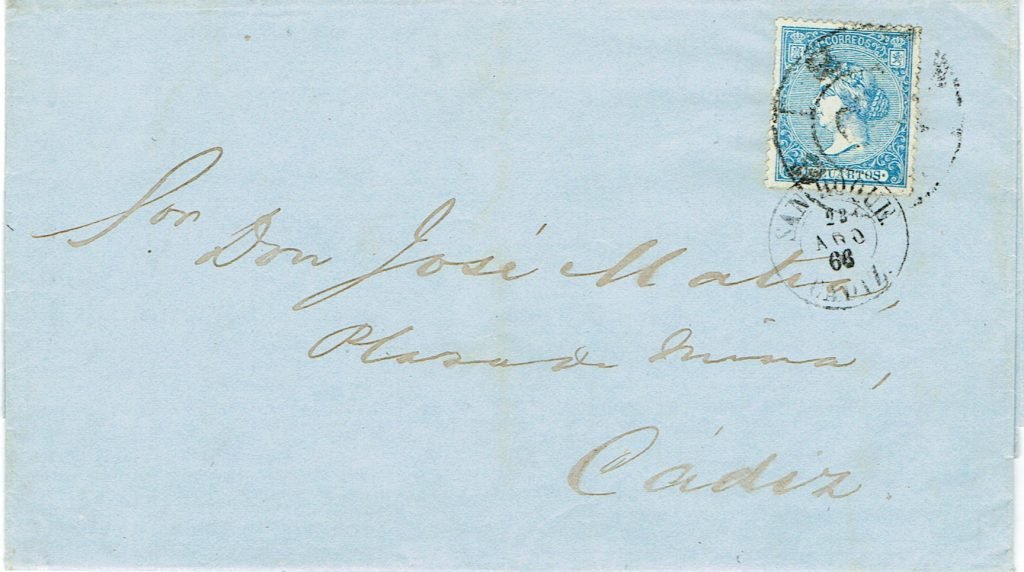 CORREOS
CUARTOS
SAN ROQUE
23
AGO
66
Sor
Don José Matia,
Plaza de Mina,
Cádiz.